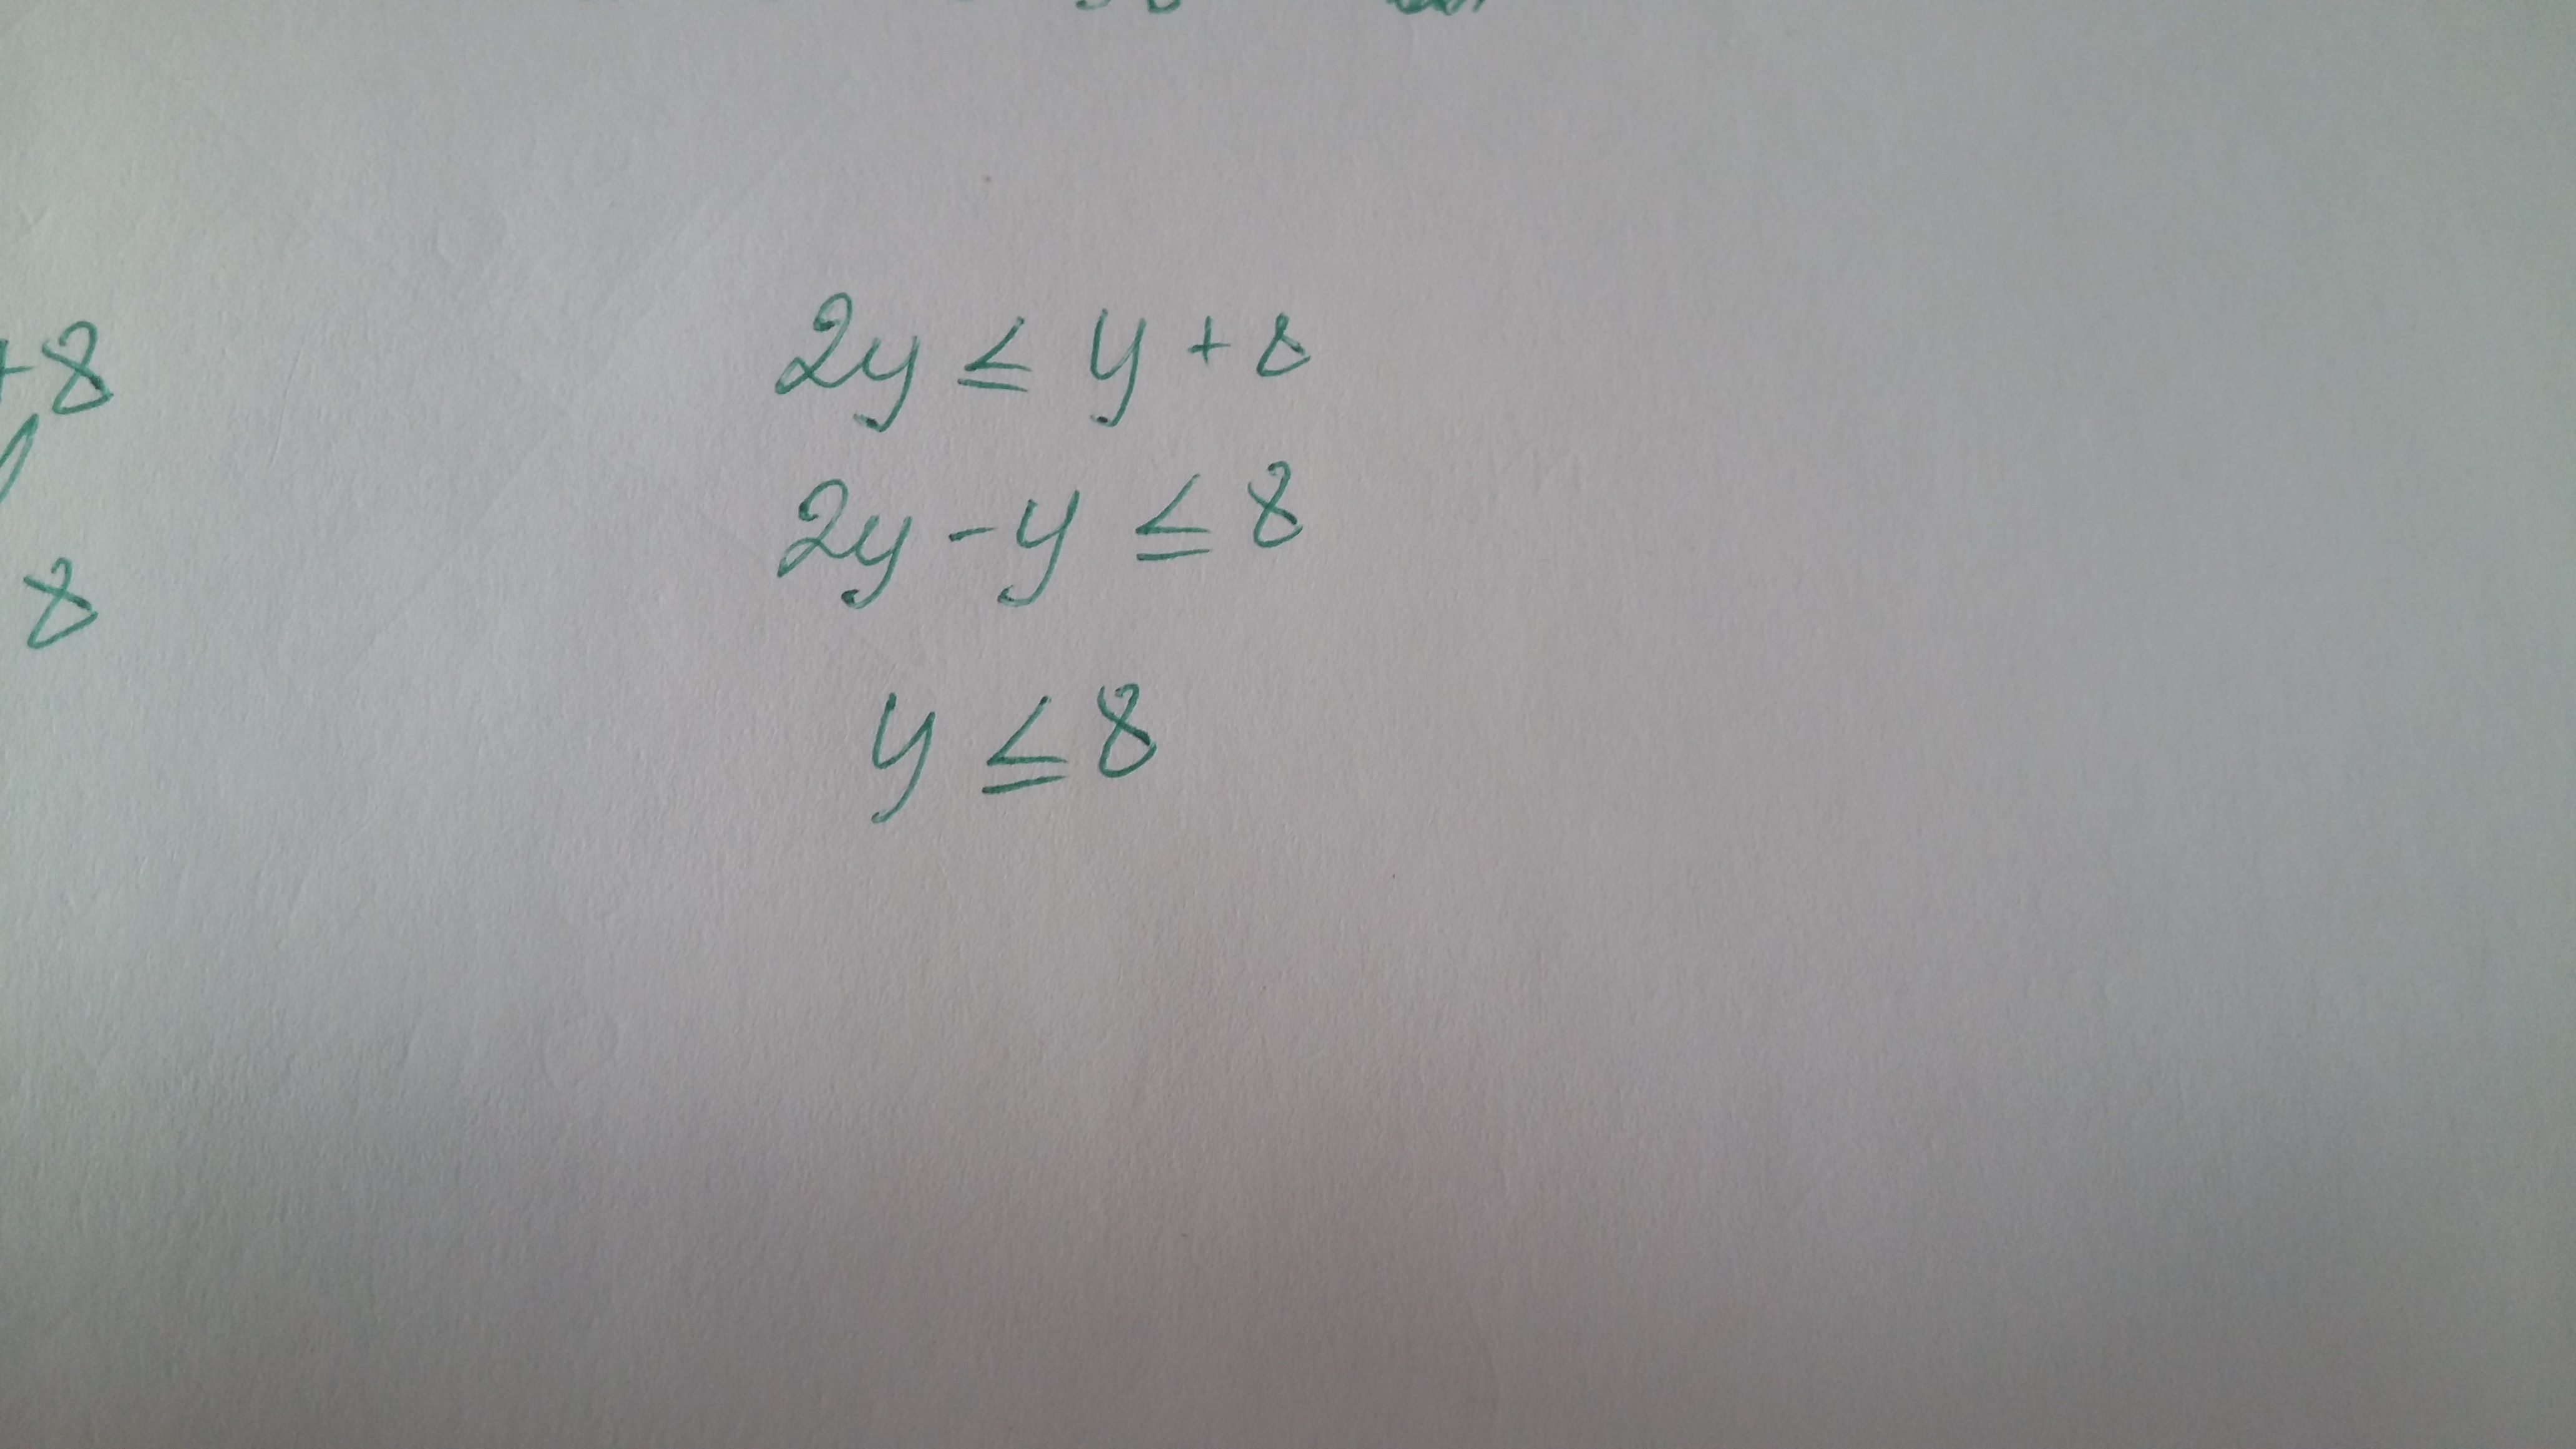 +8
8
2y ≤ y + 8
2y - y ≤ 8
y ≤ 8